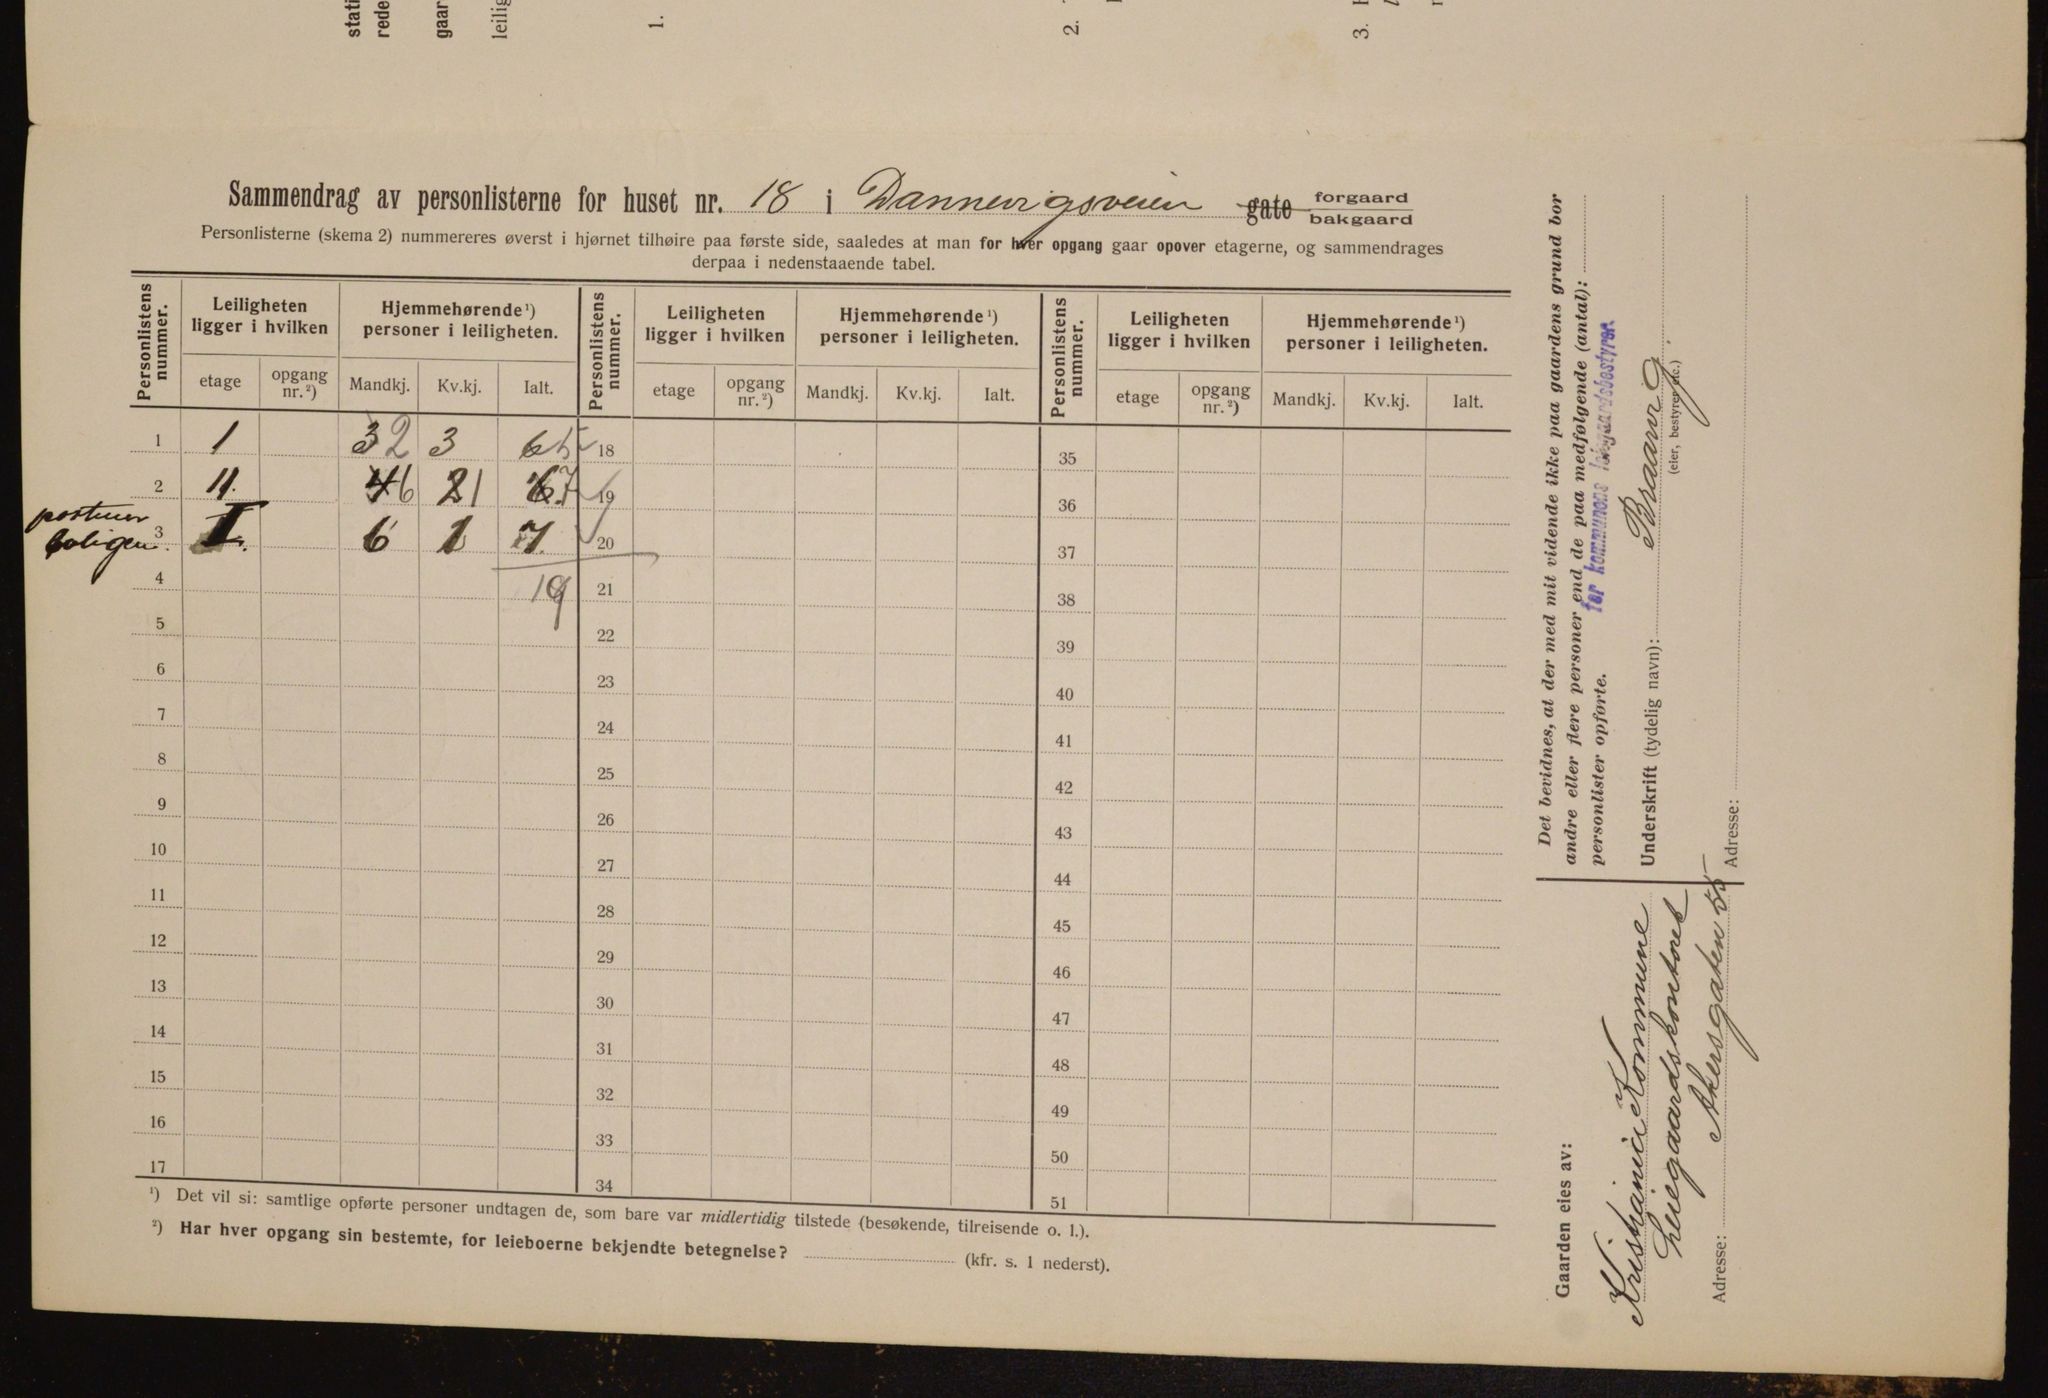 stati
rede
gaar
leilig
1.
2.
3.
Sammendrag av personlisterne for huset nr. 18 i Dannevigsveien gate forgaard
bakgaard
Personlisterne (skema 2) nummereres øverst i hjørnet tilhøire paa første side, saaledes at man for hver opgang gaar opover etagerne, og sammendrages
derpaa i nedenstaaende tabel.
Personlistens nummer. Leiligheten ligger i hvilken Hjemmehørende¹) personer i leiligheten. Personlistens nummer. Leiligheten ligger i hvilken Hjemmehørende¹) personer i leiligheten. Personlistens nummer. Leiligheten ligger i hvilken Hjemmehørende¹) personer i leiligheten.
etage opgang nr.²) Mandkj. Kv.kj. Ialt. etage opgang nr.²) Mandkj. Kv.kj. Ialt. etage opgang nr.²) Mandkj. Kv.kj. Ialt.
1 1 3 2 3 6 5 18 35
2 11. 4 6 2 1 6 7 19 36
portner
boligen. 3 I. 6 1 7. 20 37
4 19 21 38
5 22 39
6 23 40
7 24 41
8 25 42
9 26 43
10 27 44
11 28 45
12 29 46
13 30 47
14 31 48
15 32 49
16 33 50
17 34 51
¹) Det vil si: samtlige opførte personer undtagen de, som bare var midlertidig tilstede (besøkende, tilreisende o. l.).
²) Har hver opgang sin bestemte, for leieboerne bekjendte betegnelse? (kfr. s. 1 nederst).
Det bevidnes, at der med mit vidende ikke paa gaardens grund bor
andre eller flere personer end de paa medfølgende (antal):
personlister opførte.
for kommunens leiegaardsbestyrer.
Underskrift (tydelig navn): Braarvig.
(eier, bestyrer etc.)
Adresse:
Gaarden eies av:
Kristiania Kommune
Leiegaardskontoret
Adresse: Akersgaten 55